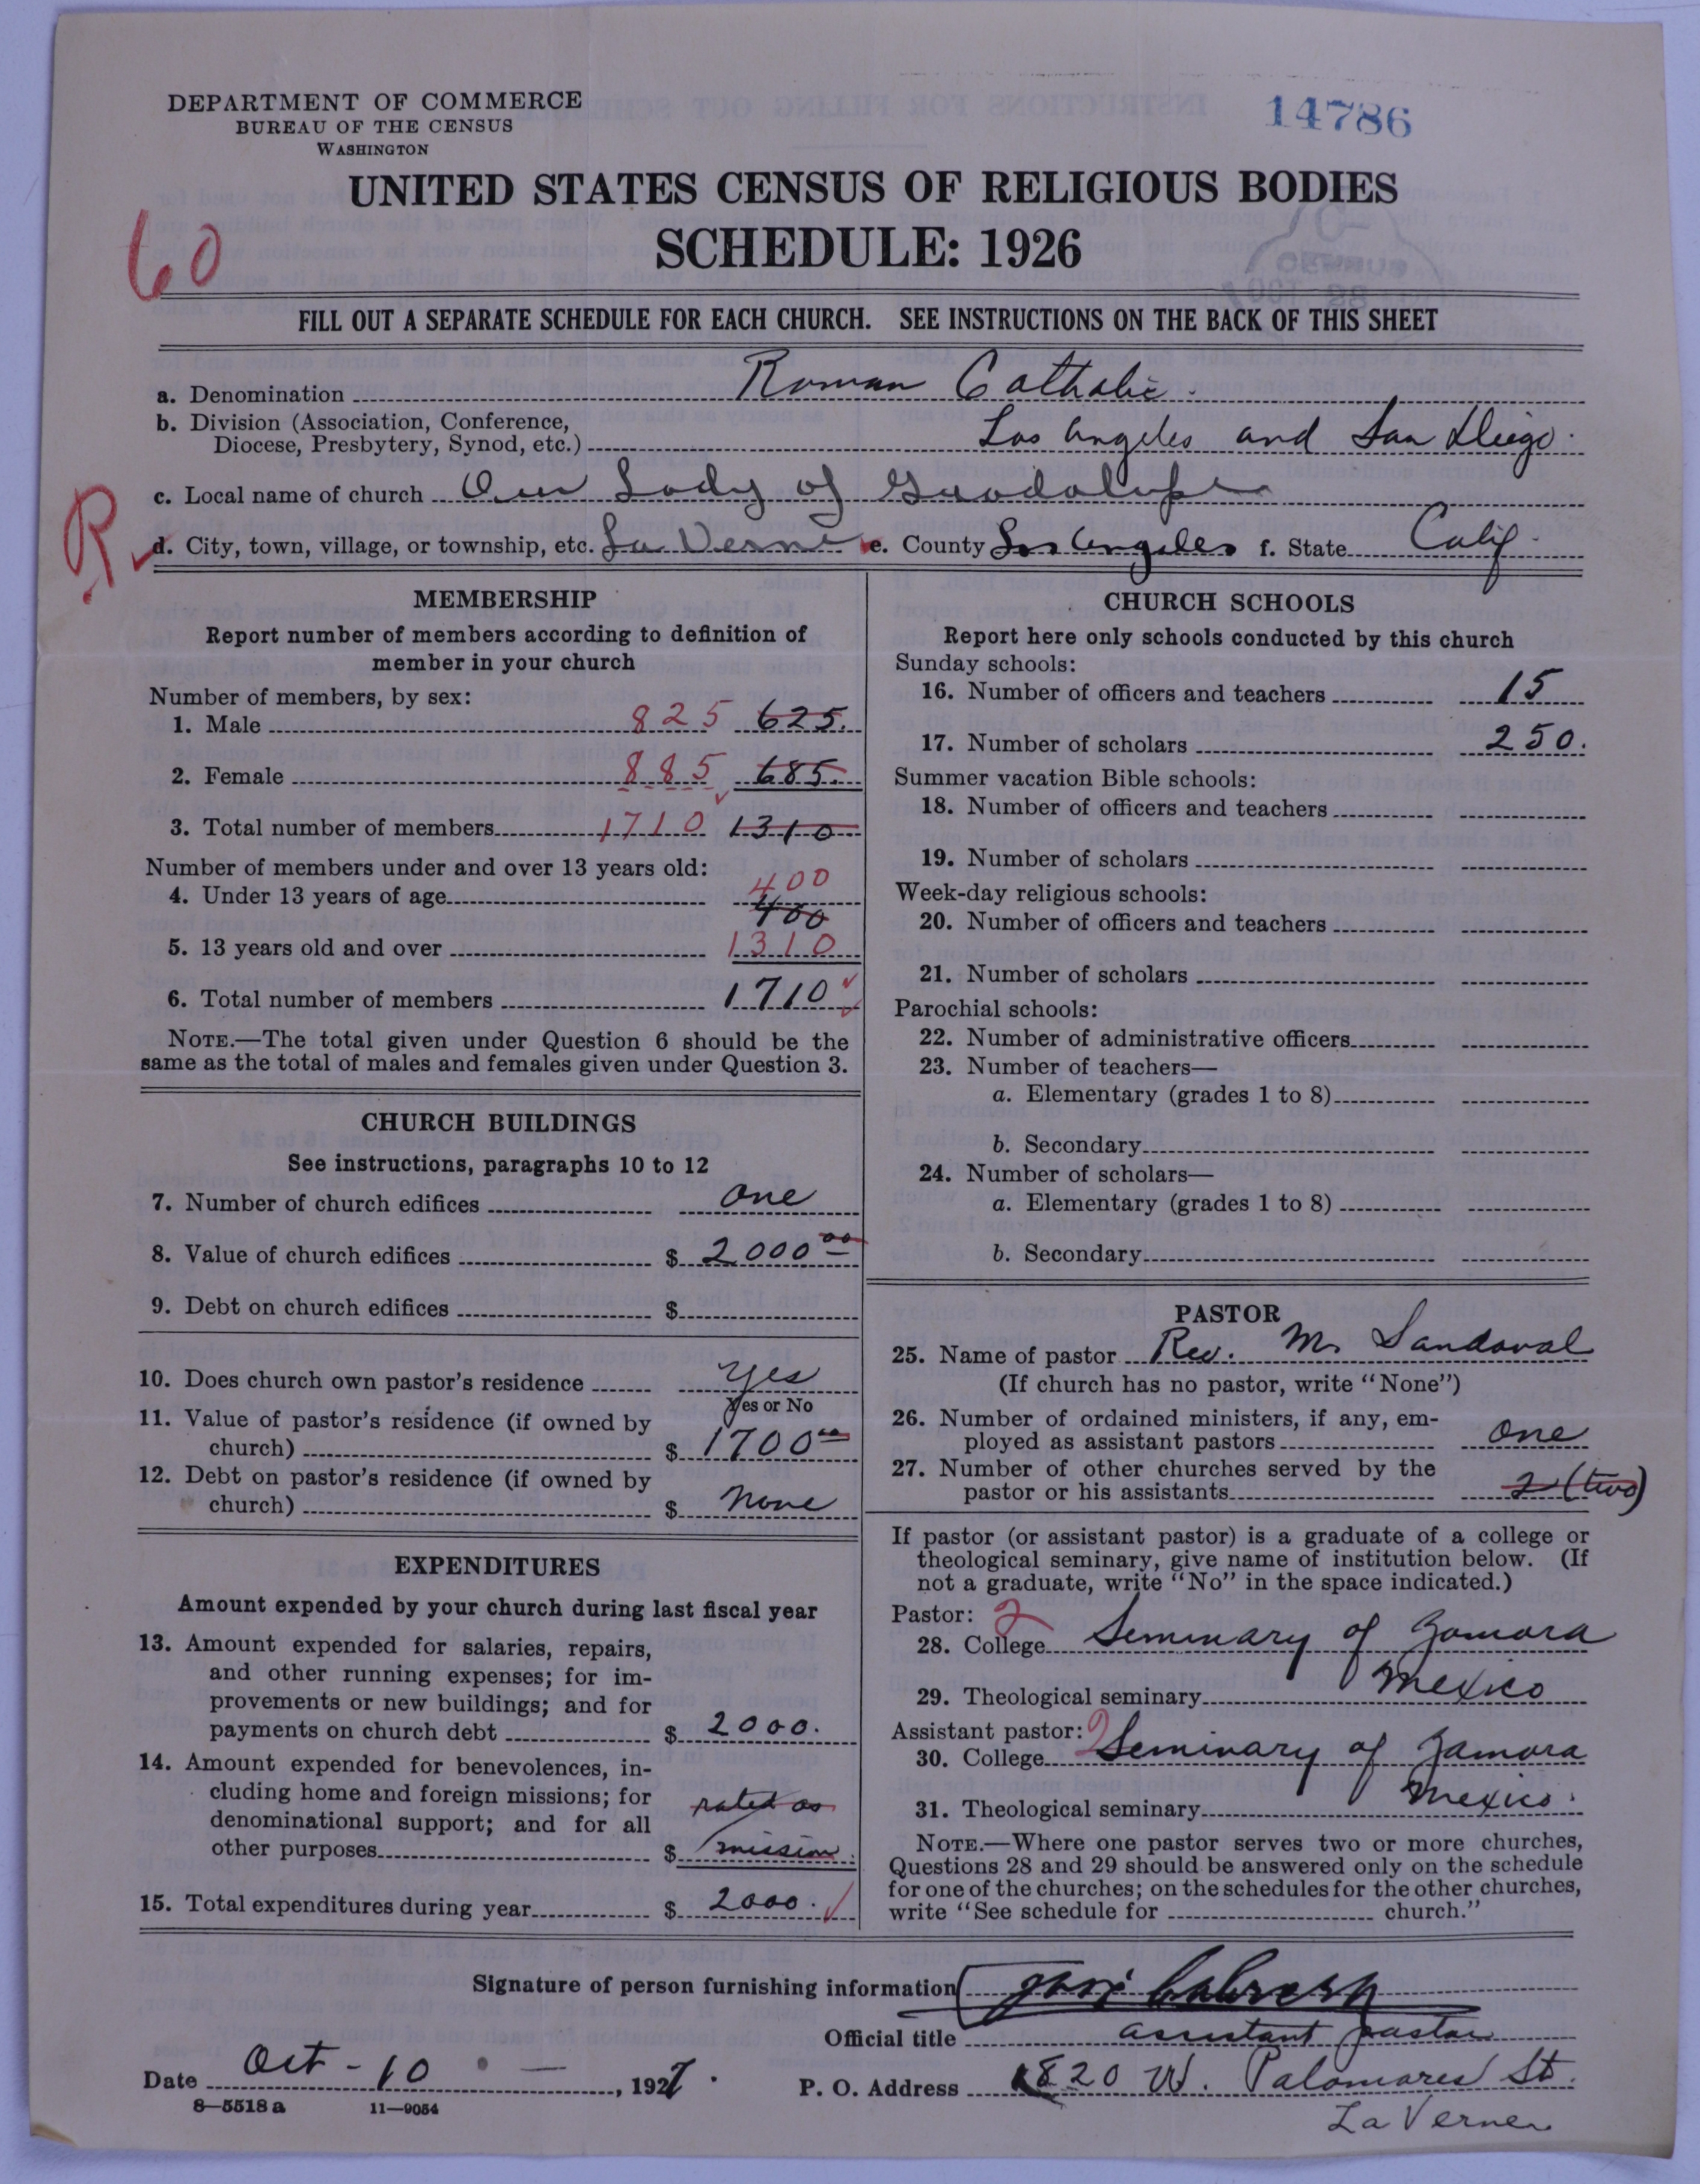 DEPARTMENT OF COMMERCE
BUREAU OF THE CENSUS
WASHINGTON
14786
UNITED STATES CENSUS OF RELIGIOUS BODIES
SCHEDULE: 1926
60
FILL OUT A SEPARATE SCHEDULE FOR EACH CHURCH. SEE INSTRUCTIONS ON THE BACK OF THIS SHEET
a. Denomination Roman Catholic.
b. Division (Association, Conference,
Diocese, Presbytery, Synod, etc.) Los Angeles and San Diego.
c. Local name of church Our Lady of Guadalupe
R
d. City, town, village, or township, etc. La Verne e. County Los Angeles f. State Calif.
MEMBERSHIP
Report number of members according to definition of
member in your church
Number of members, by sex:
1. Male 825 625.
2. Female 885 685.
3. Total number of members 1710 1310
Number of members under and over 13 years old:
4. Under 13 years of age 400
400
5. 13 years old and over 1310
6. Total number of members 1710
NOTE.—The total given under Question 6 should be the
same as the total of males and females given under Question 3.
CHURCH BUILDINGS
See instructions, paragraphs 10 to 12
7. Number of church edifices one
8. Value of church edifices $ 2000 00
9. Debt on church edifices $
10. Does church own pastor's residence yes
Yes or No
11. Value of pastor's residence (if owned by
church) $ 1700 00
12. Debt on pastor's residence (if owned by
church) $ none
EXPENDITURES
Amount expended by your church during last fiscal year
13. Amount expended for salaries, repairs,
and other running expenses; for im-
provements or new buildings; and for
payments on church debt $ 2000.
14. Amount expended for benevolences, in-
cluding home and foreign missions; for
denominational support; and for all
other purposes $ rated as
mission.
15. Total expenditures during year $ 2000.
CHURCH SCHOOLS
Report here only schools conducted by this church
Sunday schools:
16. Number of officers and teachers 15
17. Number of scholars 250.
Summer vacation Bible schools:
18. Number of officers and teachers
19. Number of scholars
Week-day religious schools:
20. Number of officers and teachers
21. Number of scholars
Parochial schools:
22. Number of administrative officers
23. Number of teachers—
a. Elementary (grades 1 to 8)
b. Secondary
24. Number of scholars—
a. Elementary (grades 1 to 8)
b. Secondary
PASTOR
25. Name of pastor Rev. M. Sandoval
(If church has no pastor, write "None")
26. Number of ordained ministers, if any, em-
ployed as assistant pastors one
27. Number of other churches served by the
pastor or his assistants 2 (two)
If pastor (or assistant pastor) is a graduate of a college or
theological seminary, give name of institution below. (If
not a graduate, write "No" in the space indicated.)
Pastor: 2
28. College Seminary of Zamora
29. Theological seminary Mexico
Assistant pastor: 2
30. College Seminary of Zamora
31. Theological seminary Mexico.
NOTE.—Where one pastor serves two or more churches,
Questions 28 and 29 should be answered only on the schedule
for one of the churches; on the schedules for the other churches,
write "See schedule for church."
Signature of person furnishing information José Cabrera
Official title assistant pastor
Date Oct - 10 - , 1927. P. O. Address 1820 W. Palomares St.
8—5518a 11—9054
La Verne